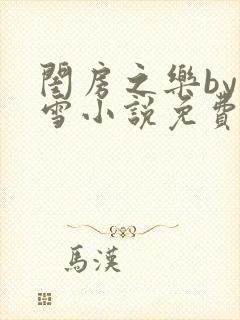 閨房之樂by
雪小説免費
馬漢